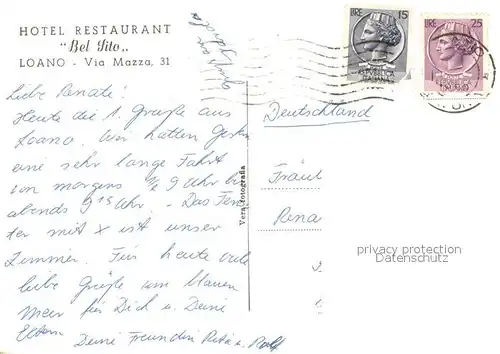 HOTEL RESTAURANT
"Bel Sito"
LOANO - Via Mazza, 31
LIRE 15
LIRE 25
Liebe Renate!
Heute die 1. Grüße aus
Loano. Wir hatten Gestern
eine sehr lange Fahrt
von morgens 9 Uhr bis
abends 9 15 Uhr. - Das Fens-
ter mit X ist unser
Zimmer. Für heute viele
liebe Grüße vom blauen
Meer für Dich u. Deine
Eltern
Deine Freundin Rita u. Ralf
Vera fotografia
Deutschland
Fräul
Rena
privacy protection
Datenschutz